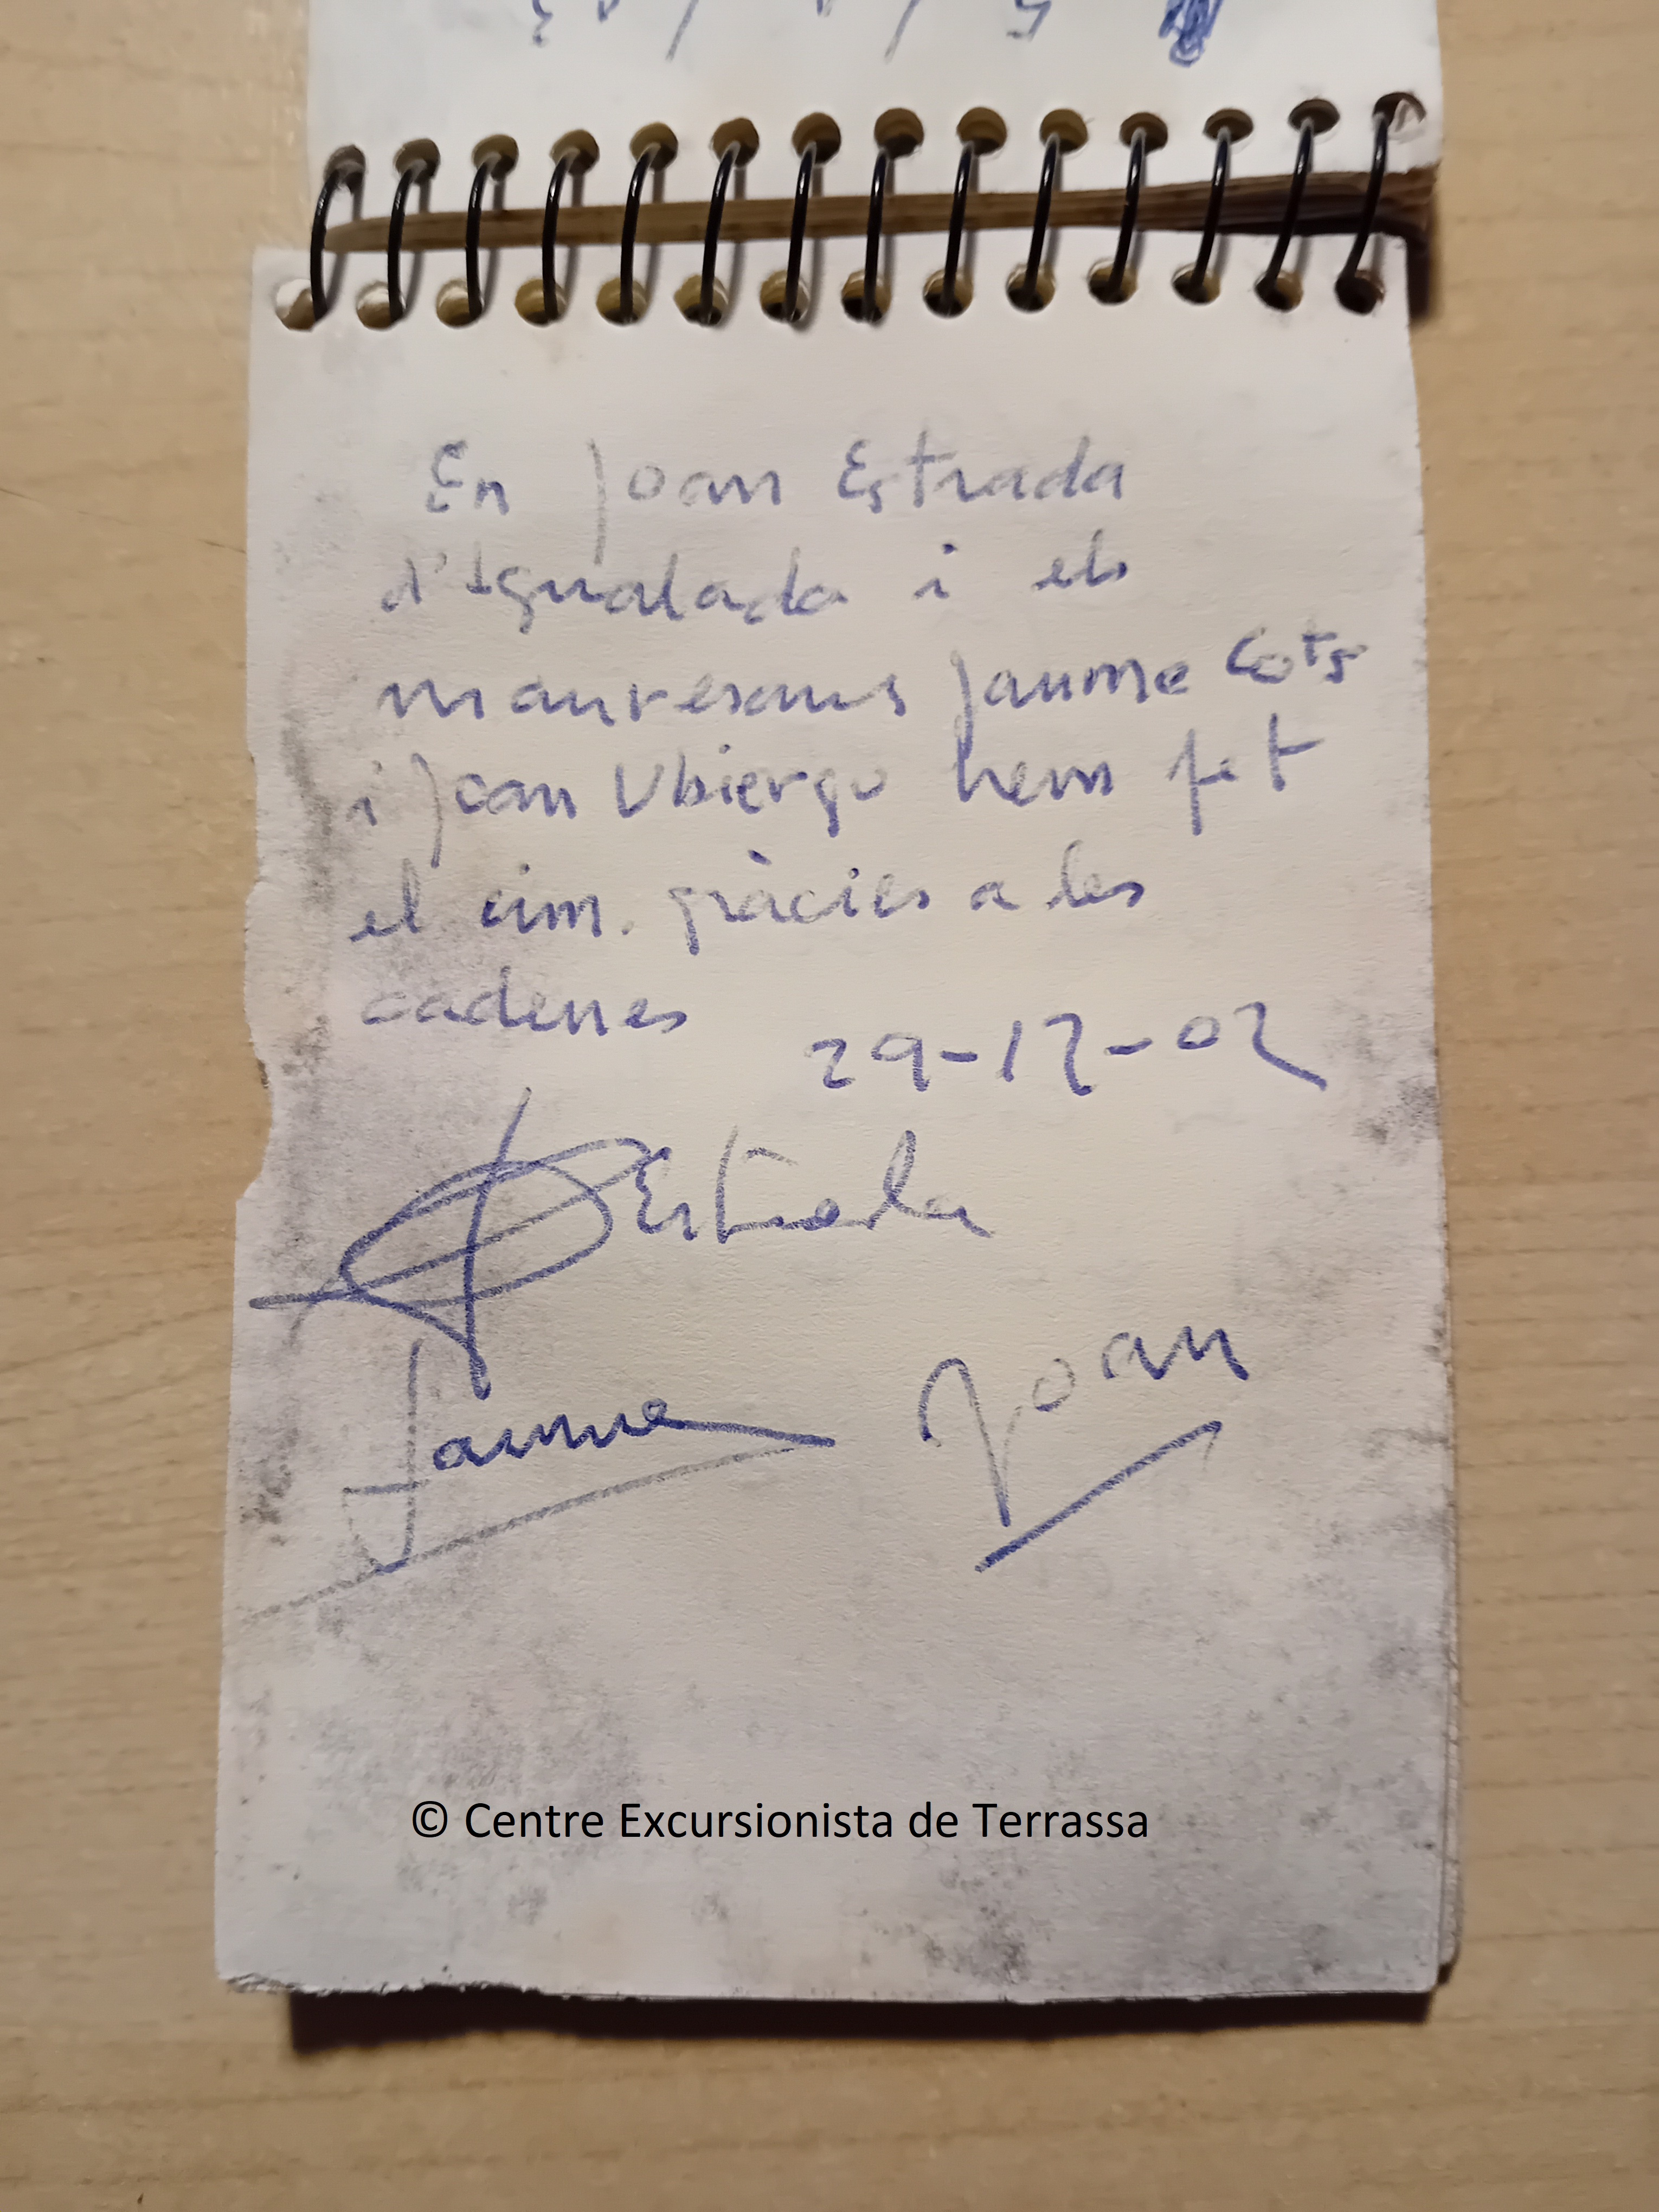 En Joan Estrada
d'Igualada i els
manresans Jaume Cots
i Joan Ubiergo hem fet
el cim. gràcies a les
cadenes
29-12-02
Estrada
Jaume
Joan
© Centre Excursionista de Terrassa